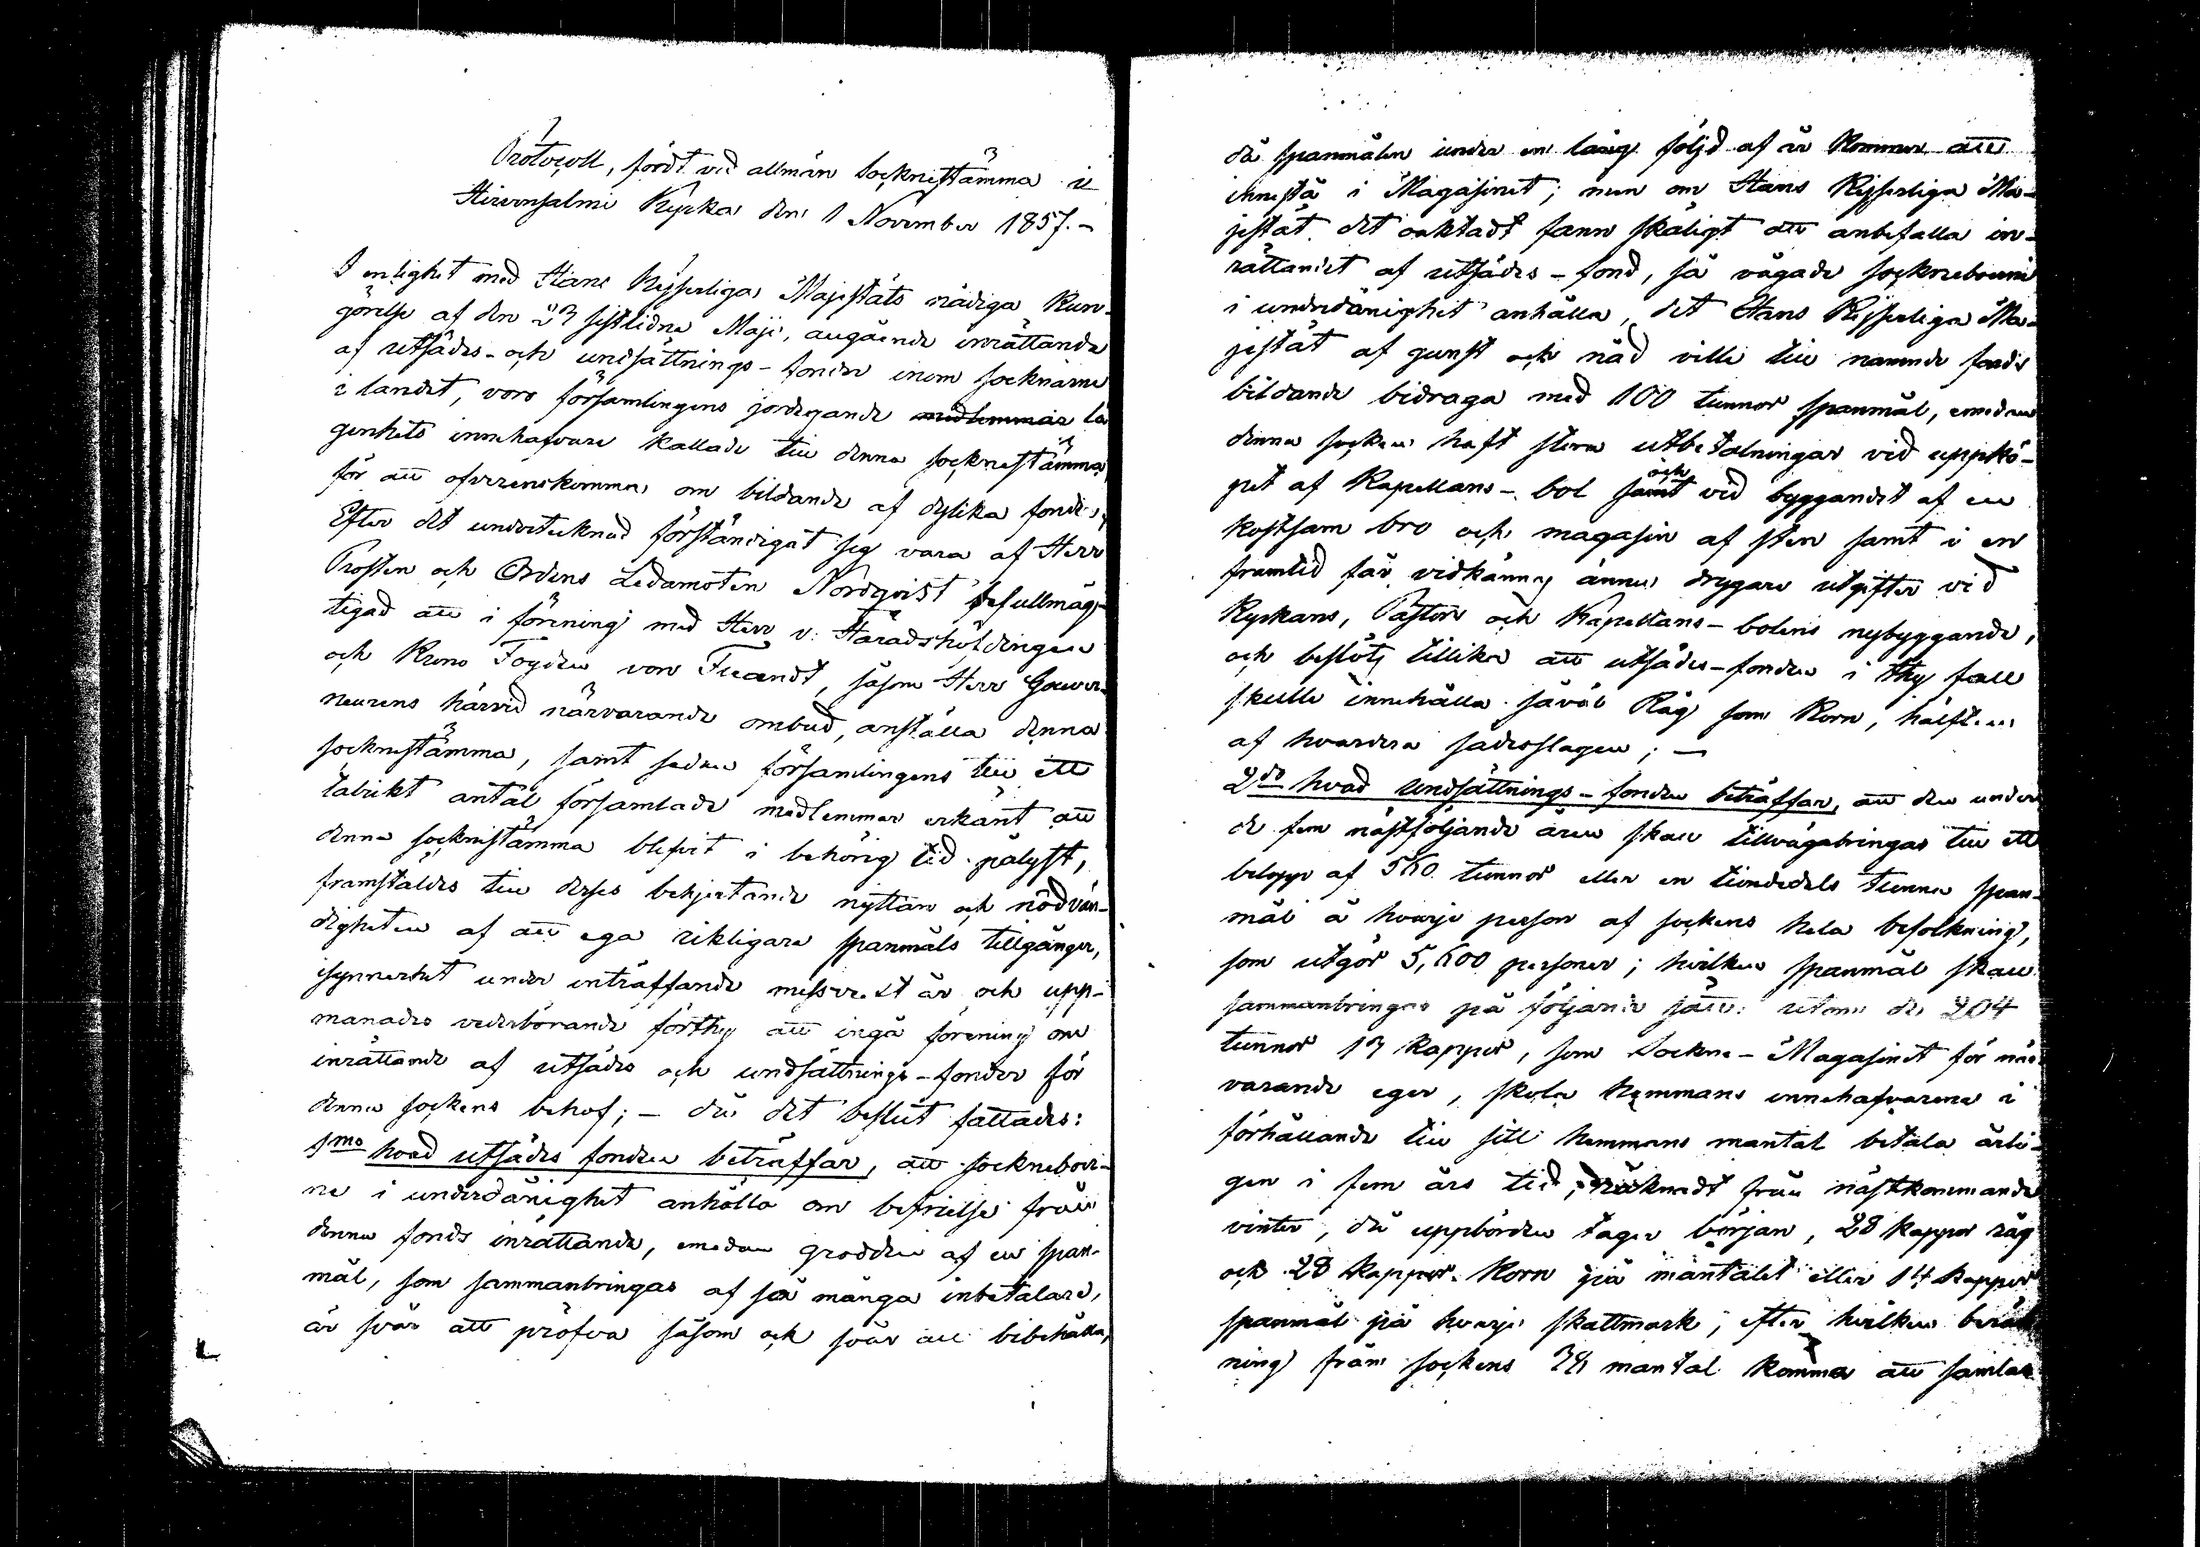 Protocoll, fördt vid allmän Socknestämma i
Hirvensalmi Kyrka den 1 November 1857.-
I enlighet med Hans Kejserliga Majestäts nådiga Kun-
görelse af den 23 sistlidne Maji, angående inrättande
af utsädes- och undsättnings-fonder inom socknarne
i landet, voro församlingens jordegande medlemmar lä
genhets innehafvare kallade till denna socknestämma
för att öfverenskomma om bildande af dylika fonder;
Efter det undertecknad förständigat sig vara af Herr
Prosten och Ordens Ledamoten Nordqvist befullmäg-
tigad att i förening med Herr v: Häradshöfdingen
och Krono Fogden von Fieandt, såsom Herr Gouver-
neurens härvid närvarande ombud, anställa denna
socknestämma, samt sedan församlingens till ett
talrikt antal församlade medlemmar erkänt att
denna socknestämma blifvit i behörig tid pålyst,
framstäldes till deras behjertande nyttan och nödvän-
digheten af att ega rikligare spanmåls tillgångar,
isynnerhet under inträffande missvext år och upp-
manades vederbörande förthy att ingå förening om
inrättande af utsädes och undsättnings-fonder för
denna sockens behof; - då det beslut fattades:
1mo hvad utsädes fonden beträffar, att sockneboer-
ne i underdånighet anhålla om befrielse från
denna fonds inrättande, emedan grodden af en span-
mål, som sammanbringas af så många inbetalare,
är svår att pröfva såsom ock svår att bibehålla,
då spanmålen under en lång följd af år kommer att
innestå i Magasinet; men om Hans Kejserliga Ma-
jestät det oaktadt fann skäligt att anbefalla in-
rättandet af utsädes-fond, så vågade sockneboerne
i underdånighet anhålla, det Hans Kejserliga Ma-
jestät af gunst och nåd ville till nämnde fonds
bildande bidraga med 100 tunnor spanmål, emedan
denna socken haft stora utbetalningar vid uppkö-
pet af Kapellans-bol samt och vid byggandet af en
kostsam bro och magasin af sten samt i en
framtid får vidkännas ännu drygare utgifter vid
Kyrkans, Pastors och Kapellans-bolens nybyggande,
och beslöts tillika att utsädes-fonden i thy fall
skulle innehålla såväl Råg som Korn, hälften
af hvardera sädesslagen; -
2do hvad undsättnings-fonden beträffar, att den under
de fem nästföljande åren skall tillvägabringas till ett
belopp af 560 tunnor eller en tiondedels tunna span-
mål å hvarje person af sockens hela befolkning,
som utgör 5,600 personer; hvilken spanmål skall
sammanbringas på följande sätt: utom de 204
tunnor 13 kappar, som Sockne-Magasinet för när
varande eger, skola hemmans innehafvarene i
förhållande till sitt hemmans mantal betala årli-
gen i fem års tid, räknadt från nästkommande
vinter, då uppbörden tager början, 28 kappar råg
och 28 kappar korn på mantalet eller 14 kappar
spanmål på hvarje skattmark; efter hvilken beräk
ning från sockens mantal komma att samlas